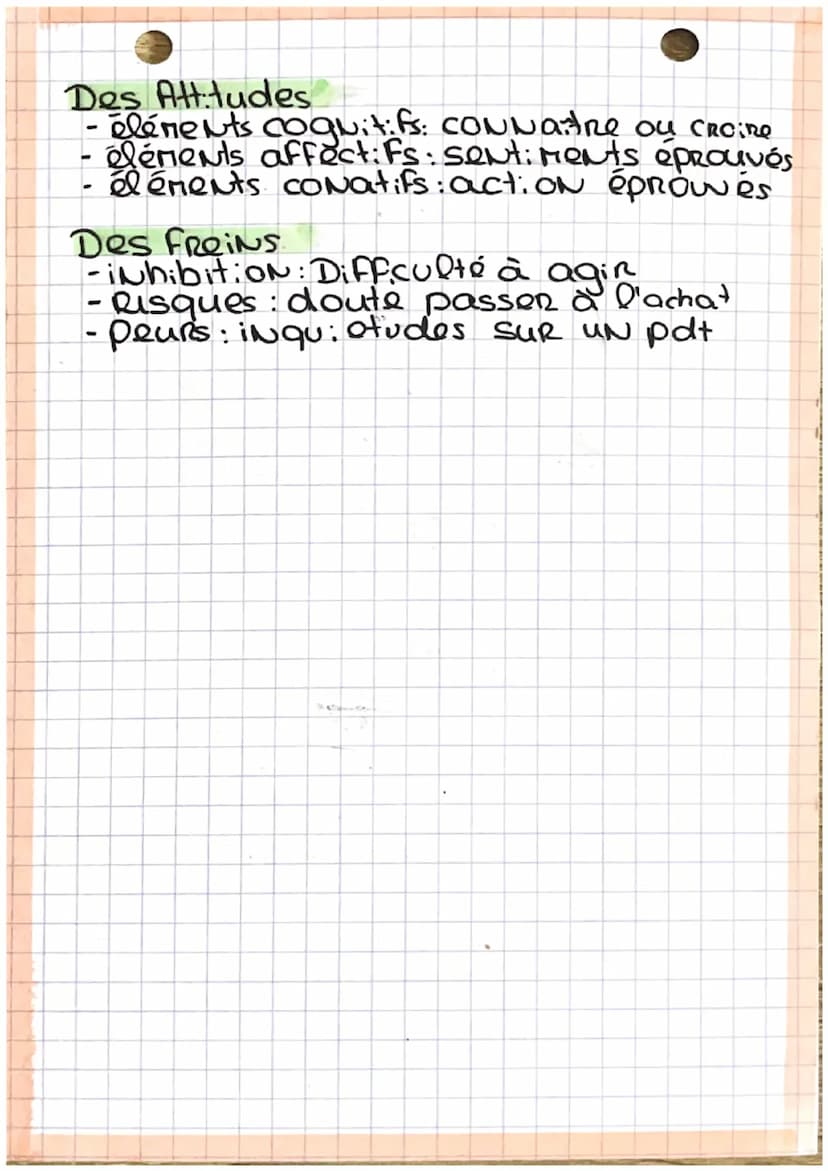 Des Attitudes
- éléments cognitifs: connaitre ou croire
- éléments affectifs: sentiments éprouvés
- éléments conatifs: action éprouvés
Des freins
- inhibition: Difficulté à agir
- Risques: doute passer à l'achat
- peurs: inquiétudes sur un pdt